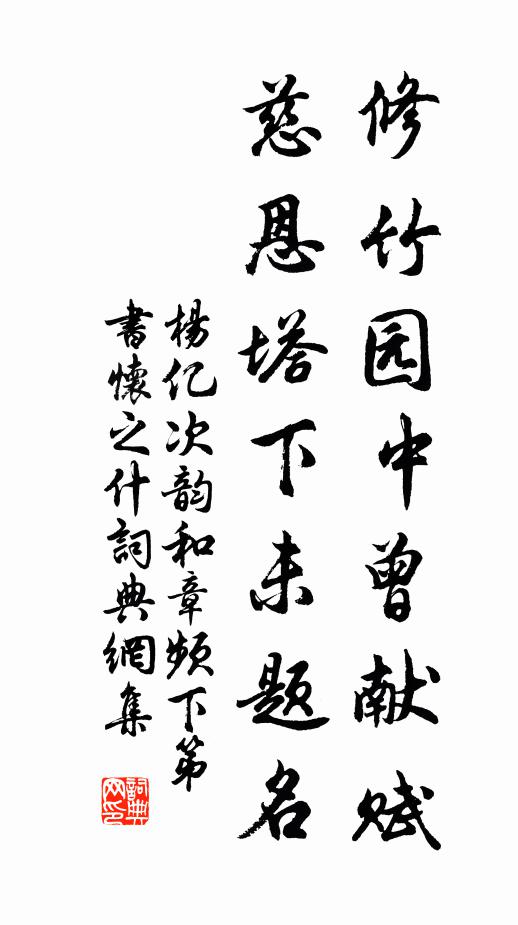 修竹园中曾献赋
慈恩塔下未题名
杨亿次韵和章频下第
書懷之什詞典網集
詞典网印